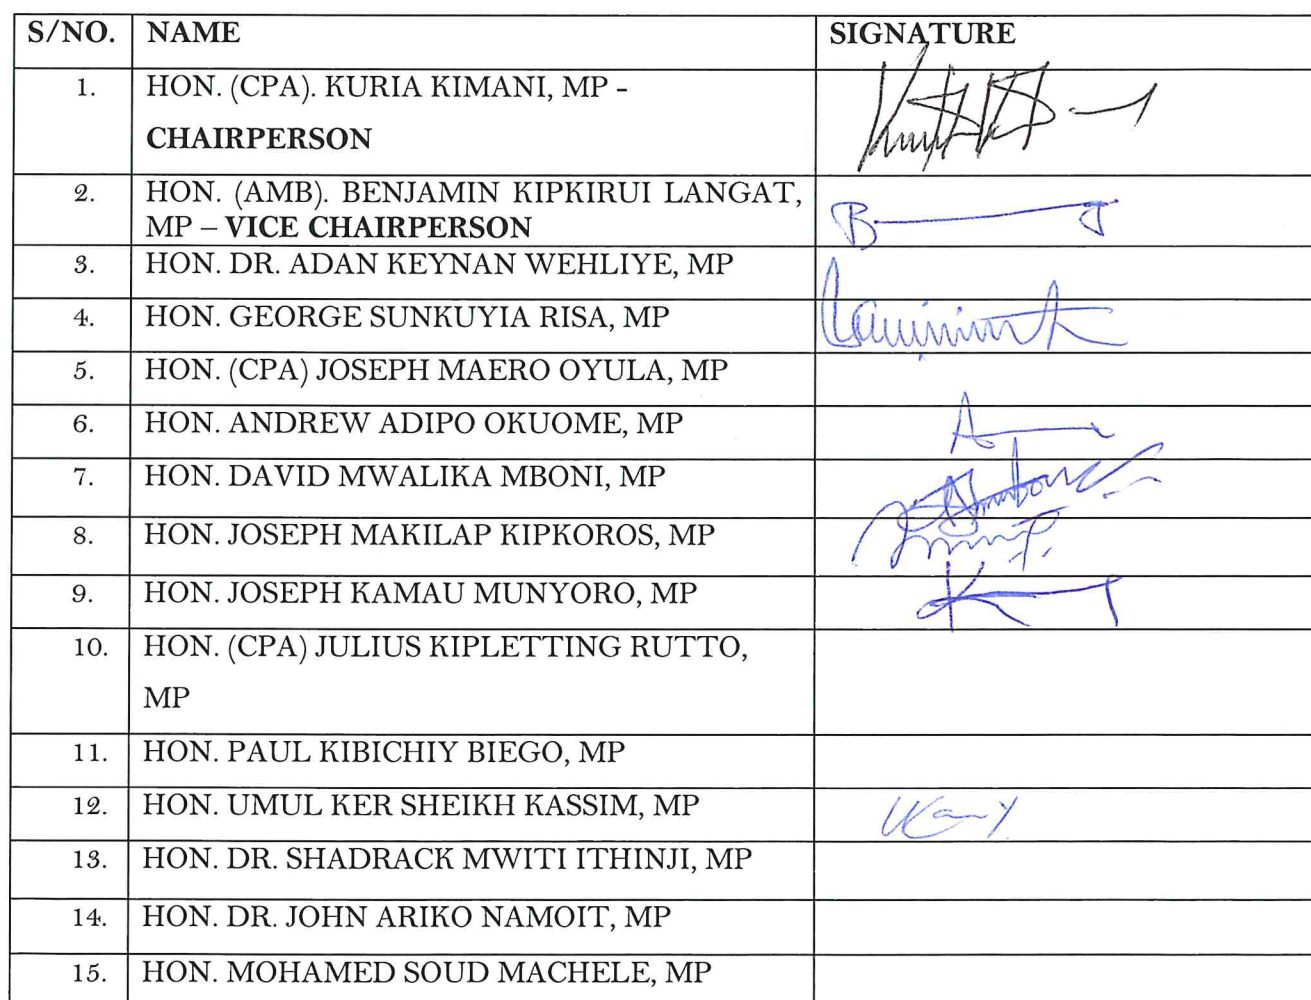 S/NO. NAME SIGNATURE
1. HON. (CPA). KURIA KIMANI, MP -
CHAIRPERSON
2. HON. (AMB). BENJAMIN KIPKIRUI LANGAT,
MP – VICE CHAIRPERSON
3. HON. DR. ADAN KEYNAN WEHLIYE, MP
4. HON. GEORGE SUNKUYIA RISA, MP
5. HON. (CPA) JOSEPH MAERO OYULA, MP
6. HON. ANDREW ADIPO OKUOME, MP
7. HON. DAVID MWALIKA MBONI, MP
8. HON. JOSEPH MAKILAP KIPKOROS, MP
9. HON. JOSEPH KAMAU MUNYORO, MP
10. HON. (CPA) JULIUS KIPLETTING RUTTO,
MP
11. HON. PAUL KIBICHIY BIEGO, MP
12. HON. UMUL KER SHEIKH KASSIM, MP
13. HON. DR. SHADRACK MWITI ITHINJI, MP
14. HON. DR. JOHN ARIKO NAMOIT, MP
15. HON. MOHAMED SOUD MACHELE, MP